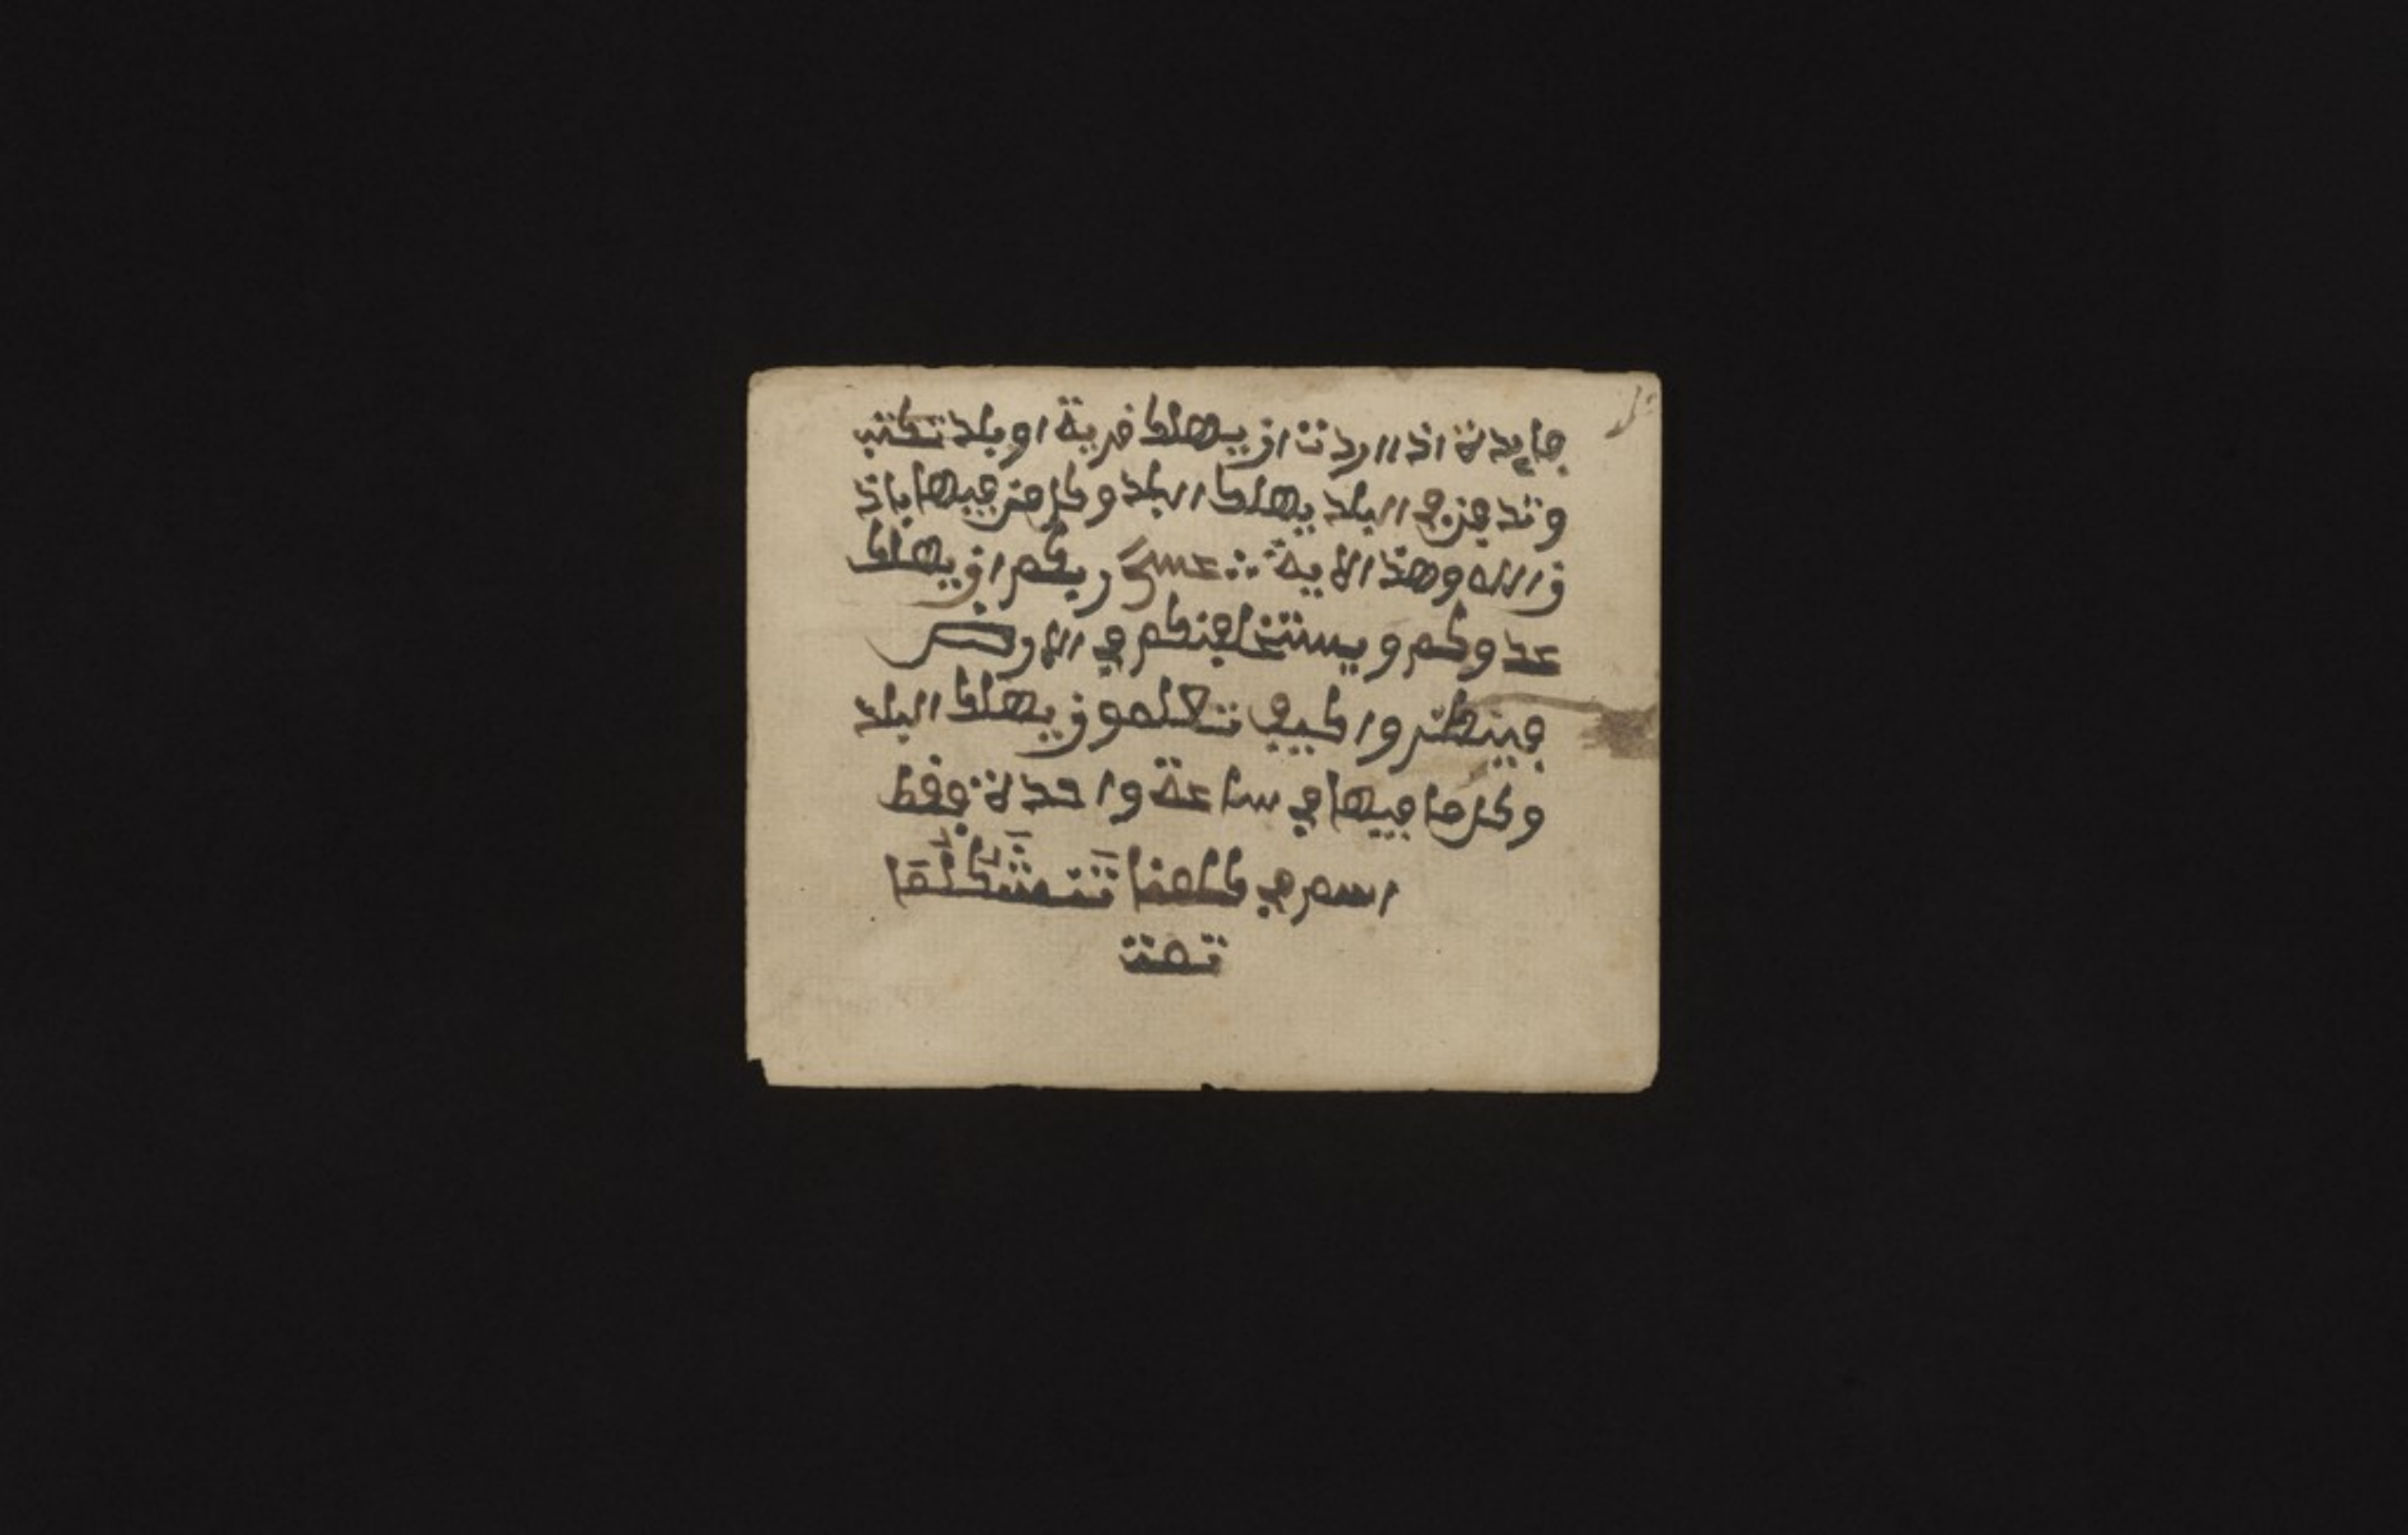 فايدة اذا اردت ان يهلك قرية او بلد تكتب
وتدفن في البلد يهلك البلد وكل من فيها باذ
ن الله وهذ الاية عسى ربكم ان يهلك
عدوكم ويستخلفنكم في الارض
فينظروا كيف تعلمون يهلك البلد
وكل ما فيها في ساعة واحدة فقط
اسم في
تمت